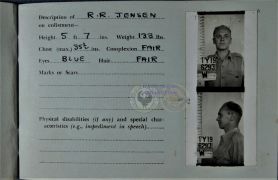 Description of R.R. JENSEN
on enlistment—
Height 5 ft. 7 ins. Weight lbs.
Chest (max.) ins. Complexion FAIR
Eyes BLUE Hair FAIR
Marks or Scars
Physical disabilities (if any) and special char-
acteristics (e.g., impediment in speech)